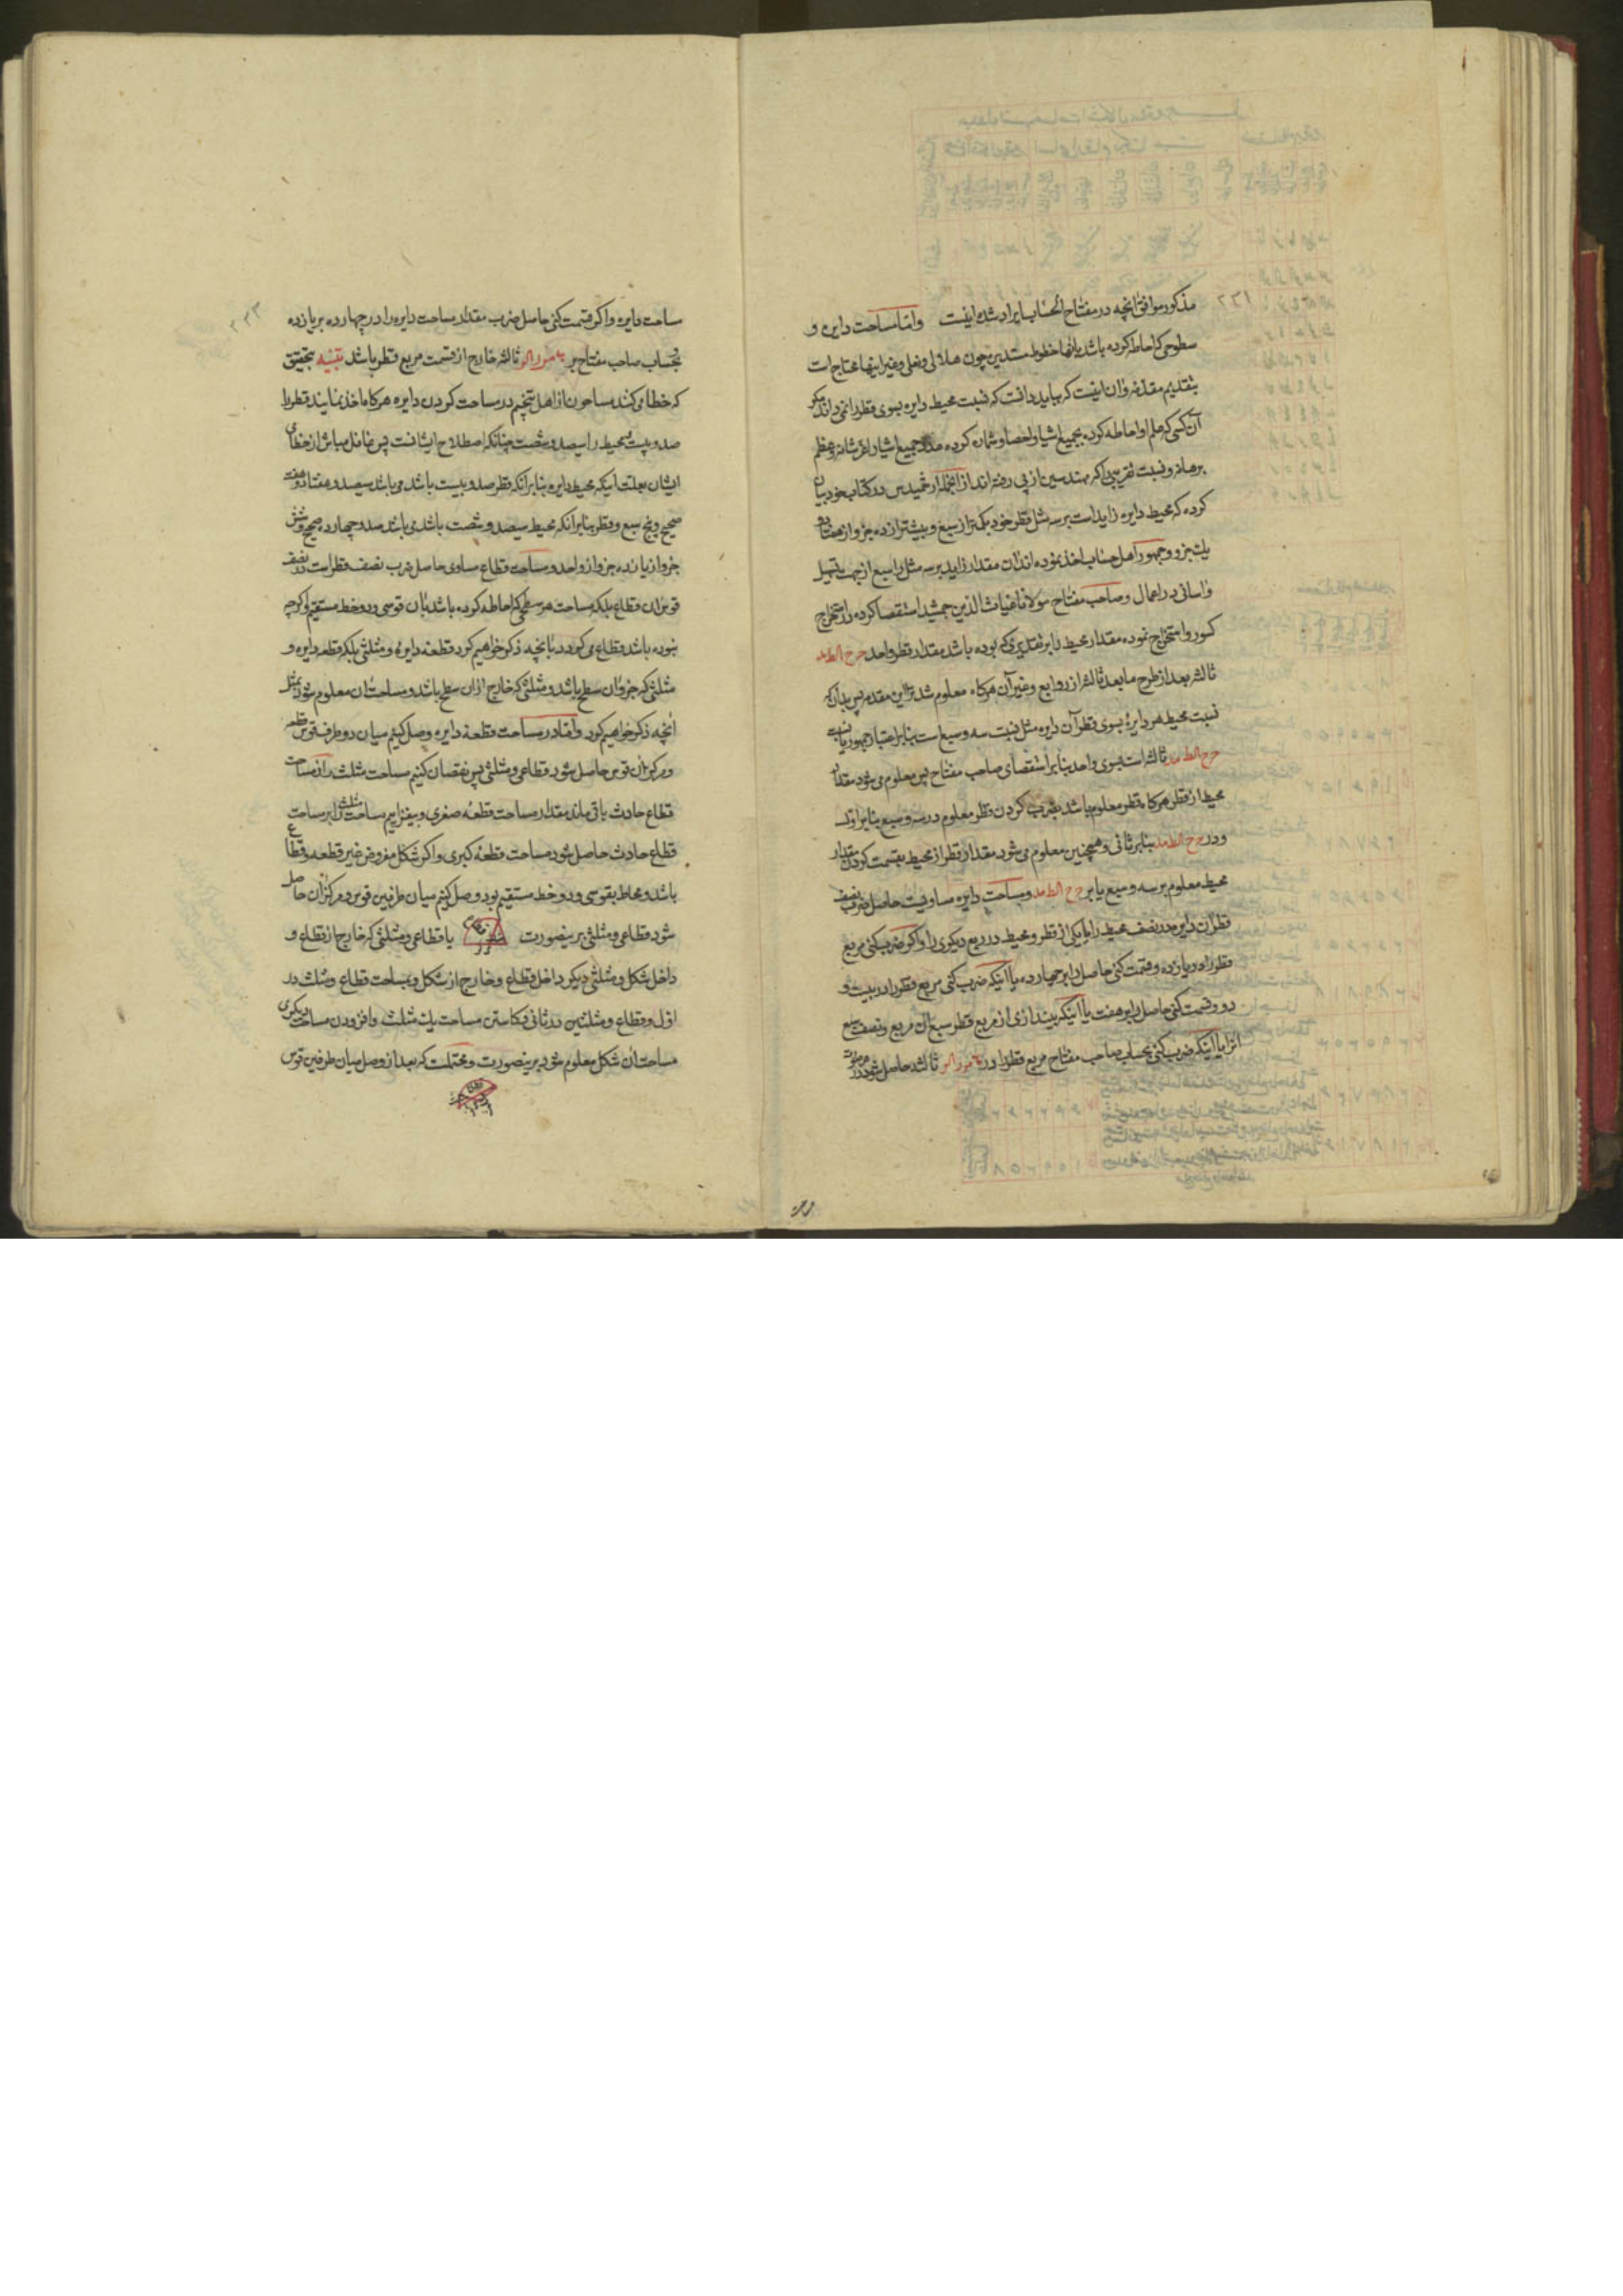 مذکور موافق انچه در مفتاح الحساب ایراد شده اینست واما مساحت دایره و
سطوحی که احاطه کرده باشد بانها خطوط مستدیر چون هلالی و نعلی و غیر اینها محتاج است
بتقدیم مقدمه و ان اینست که بباید دانست که نسبت محیط دایره بسوی قطر را نمی‌داند مکر
آن کسی که علم او احاطه کرده بجمیع اشیا و احصا و شماره کرده عدد جمیع اشیا را عز شانه و عظم
برهانه و نسبت تقریبی که مهندسین از پی رفته اند از انجمله ارشمیدس در کتاب خود بیان
کرده که محیط دایره زاید است بر سه مثل قطر خود بکمتر از سبع و بیشتر از ده جزو از هفتاد و
یک جزو و جمهور اهل حساب اخذ نموده اند ان مقدار زاید بر سه مثل را سبع از جهت تسهیل
و اسانی در اعمال و صاحب مفتاح مولانا غیاث الدین جمشید استقصا کرده در استخراج
کسور و استخراج نموده مقدار محیط را بر تقدیری که بوده باشد مقدار قطر واحد ج ح الط مد
ثالثه بعد از طرح ما بعد ثالثه از روابع و غیر آن هرکاه معلوم شد ترا این مقدمه پس بدان که
نسبت محیط هر دایرهٔ بسوی قطر آن دایره مثل نسبت سه و سبع است بنابر اعتبار جمهور یا نسبت
ج ح الط مد ثالثه است بسوی واحد بنابر استقصای صاحب مفتاح پس معلوم می شود مقدار
محیط از قطر هرکاه قطر معلوم باشد بضرب کردن قطر معلوم در سه و سبع بنابر اول
و در ج ح الط مد بنابر ثانی و همچنین معلوم می شود مقدار قطر از محیط بقسمت کردن مقدار
محیط معلوم بر سه و سبع یا بر ج ح الط مد و مساحت دایره مساویست حاصل ضرب نصف
قطر آن دایره در نصف محیط را یا یکی از قطر و محیط در ربع دیکری را و اکر ضرب کنی مربع
قطر را در یازده و قسمت کنی حاصل را بر چهارده یا اینکه ضرب کنی مربع قطر را در بیست و
دو و قسمت کنی حاصل را بر هفت یا اینکه بیندازی از مربع قطر سبع ان مربع و نصف سبع
انرا یا اینکه ضرب کنی بحساب صاحب مفتاح مربع قطر را در ثالثه حاصل شود در
۲۲۳
ساحت دایره و اکر قسمت کنی حاصل ضرب مقدار مساحت دایره را در چهارده بر یازده
و بحساب صاحب مفتاح بر ثالثه خارج از قسمت مربع قطر باشد تنبیه بتحقیق
که خطا می کنند مساحون از اهل تنجیم در مساحت کردن دایره هرکاه اخذ نمایند قطر را
صد و بیست و محیط را سیصد و شصت چنانکه اصطلاح ایشانست پس غافل مباش از خطای
ایشان بعلت آنکه محیط دایره بنابر آنکه قطر صد و بیست باشد می باشد سیصد و هفتاد و هفت
صحیح و پنج سبع و قطر بنابر انکه محیط سیصد و شصت باشد می باشد صد و چهارده صحیح و شش
جزو از یازده جزو از واحد و مساحت قطاع مساوی حاصل ضرب نصف قطر است در نصف
قوس ان قطاع بلکه مساحت هر سطحی که احاطه کرده باشد بان قوسی و دو خط مستقیم اکرچه
نبوده باشد قطاع می کردد بانچه ذکر خواهیم کرد قطعهٔ دایره و مثلثی بلکه قطعه دایره و
مثلثی که جزو ان سطح باشد و مثلثی که خارج ازان سطح باشد و مساحت ان معلوم شود بمثل
انچه ذکر خواهیم کرد و اما در مساحت قطعهٔ دایره وصل کنیم میان دو طرف قوس قطعه
و مرکز ان قوس حاصل شود قطاعی و مثلثی پس نقصان کنیم مساحت مثلث را از مساحت
قطاع حادث باقی ماند مقدار مساحت قطعهٔ صغری و بیفزاییم مساحت مثلث را بر مساحت
قطاع حادث حاصل شود مساحت قطعهٔ کبری و اکر شکل مفروض غیر قطعه و قطاع
باشد و محاط بقوسی و دو خط مستقیم بود وصل کنیم میان طرفین قوس و مرکز ان حاصل
شود قطاعی و مثلثی برینصورت یا قطاعی و مثلثی که خارج از قطاع و
داخل شکل و مثلثی دیکر داخل قطاع و خارج از شکل و بمساحت قطاع و مثلث در
اول و قطاع و مثلثین در ثانی و بکاستن مساحت یک مثلث و افزودن مساحت دیکری
مساحت ان شکل معلوم شود برینصورت و محتملست که بعد از وصل میان طرفین قوس